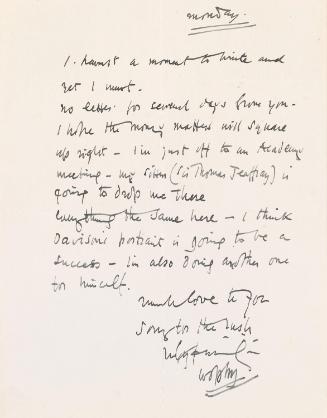 Monday.
I havnt a moment to write and
yet I must.
no letter for several days from you -
I hope the money matters will square
up right - I'm just off to an Academy
meeting - my sitter (Sir Thomas Jeaffray) is
going to drop me there
everything the same here - I think
Davison's portrait is going to be a
success - I'm also doing another one
for himself.
much love to you
Sorry for the rush